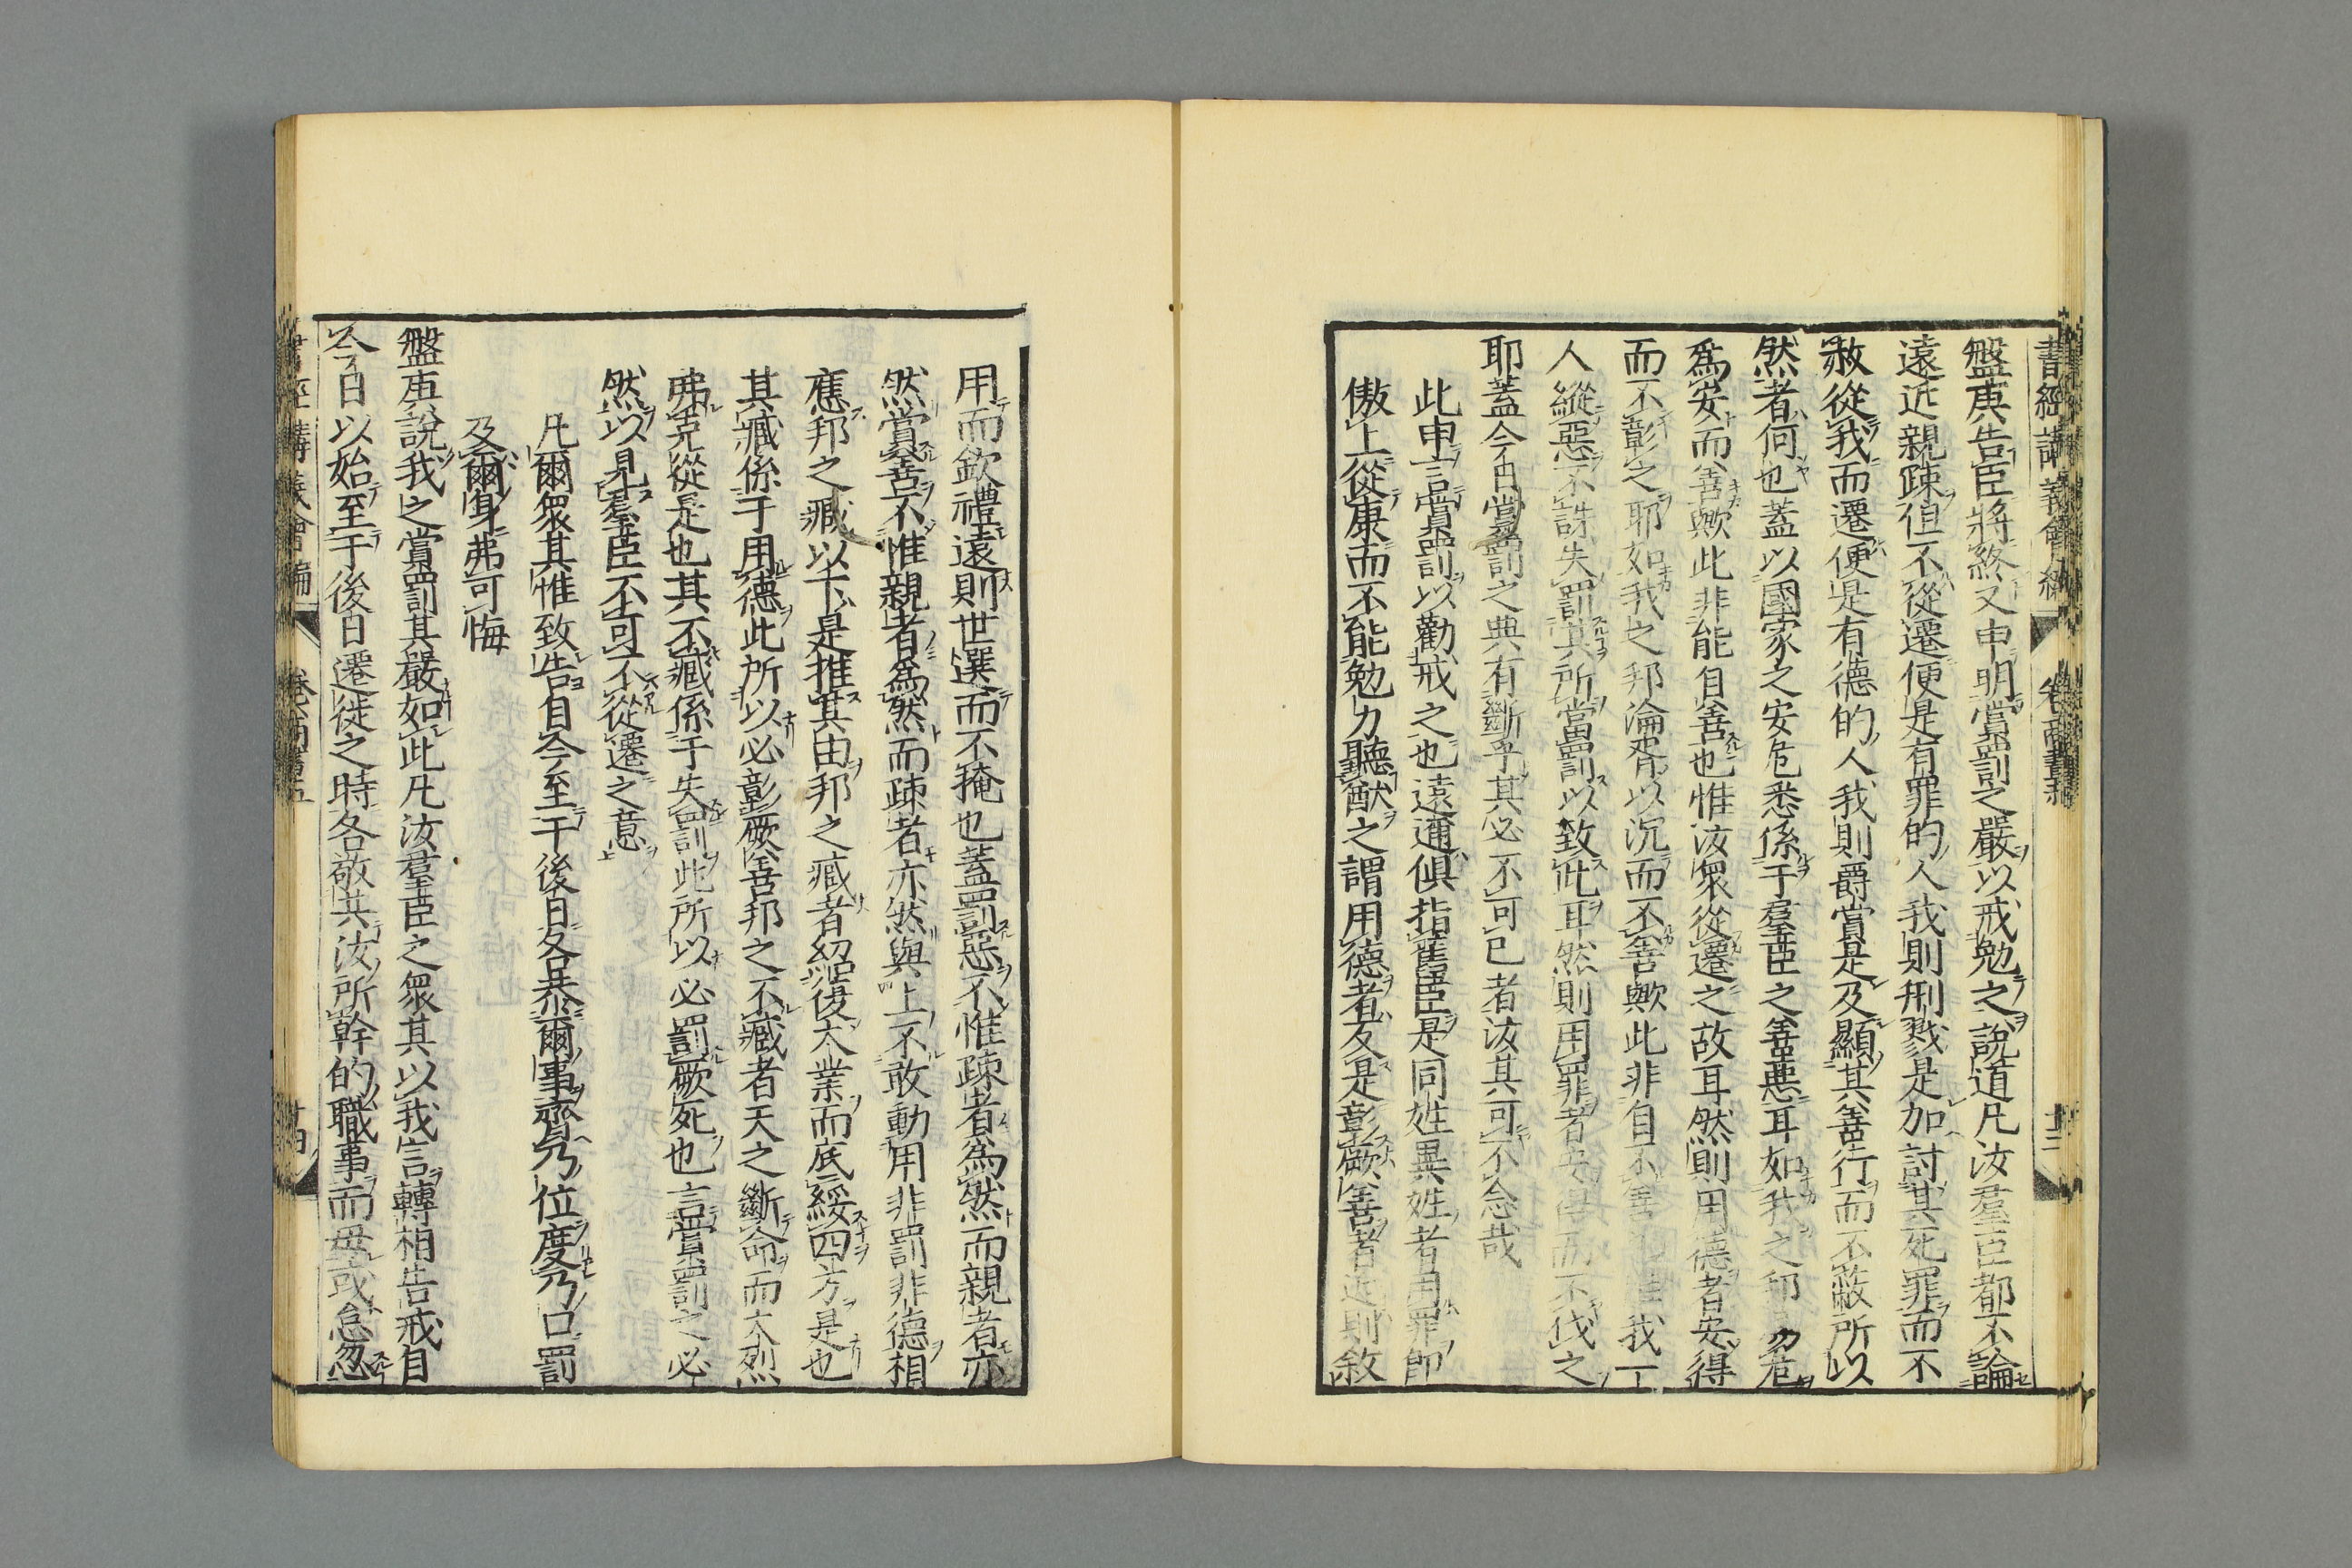 書經講義會編 卷商書五 廿三
盤庚告臣將終又申明賞罰之嚴以戒勉之說道凡汝羣臣都不論
遠近親疎但不從遷便是有罪的人我則刑戮是加討其死罪而不
赦從我而遷便是有德的人我則爵賞是及顯其善行而不蔽所以
然者何也蓋以國家之安危悉係于羣臣之善惡耳如我之邦易危
爲安而善歟此非能自善也惟汝衆從遷之故耳然則用德者安得
而不彰之耶如我之邦淪胥以沉而不善歟此非自不善我一
人縱惡不誅失罰其所當罰以致此耳然則用罪者安得而不伐之
耶蓋今日賞罰之典有斷乎其必不可已者汝其可不念哉
此申言賞罰以勸戒之也遠邇俱指舊臣是同姓異姓者用罪卽
傲上從康而不能勉力聽猷之謂用德者反是彰厥善者近則敘
用而欽禮遠則世選而不掩也蓋罰惡不惟疎者爲然而親者亦
然賞善不惟親者爲然而疎者亦然與上不敢動用非罰非德相
應邦之臧以下是推其由邦之臧者紹復大業而底綏四方是也
其臧係于用德此所以必彰厥善邦之不臧者天之斷命而大烈
弗克從是也其不臧係于失罰此所以必罰厥死也言賞罰之必
然以見羣臣不可不從遷之意
凡爾衆其惟致告自今至于後日各恭爾事齊乃位度乃口罰
及爾身弗可悔
盤庚說我之賞罰其嚴如此凡汝羣臣之衆其以我言轉相告戒自
今日以始至于後日遷徙之時各敬共汝所幹的職事而毋或怠忽
書經講義會編 卷商書五 廿四